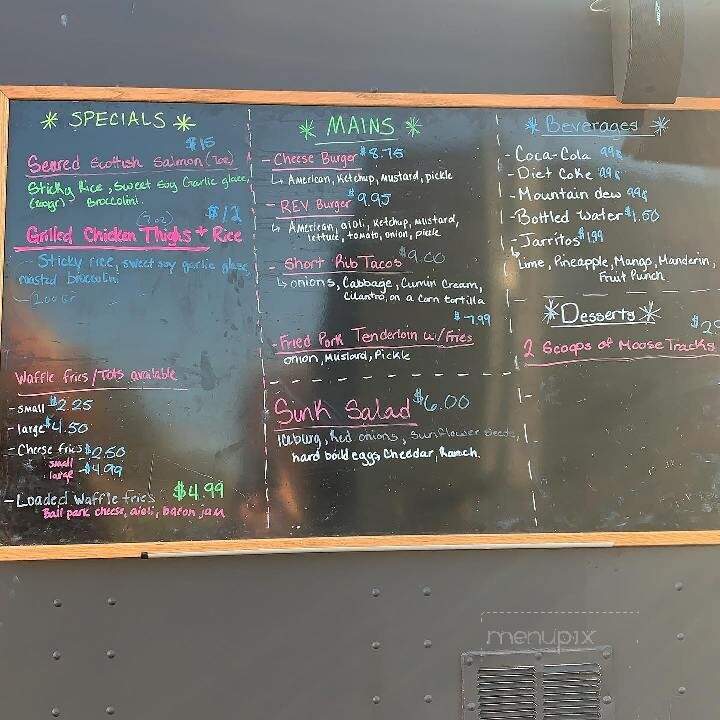 SPECIALS
$15
Seared Scottish Salmon (7oz)
Sticky Rice, Sweet Soy Garlic glaze,
(200gr) Broccolini.
(7oz) $12
Grilled Chicken Thighs + Rice
- Sticky rice, sweet soy garlic glaze,
roasted broccolini
- 200gr
Waffle fries / Tots available
- small $2.25
- large $4.50
- Cheese fries $2.50
small
large $4.99
- Loaded Waffle fries $4.99
Ball park cheese, aioli, bacon jam
MAINS
- Cheese Burger $8.75
American, Ketchup, Mustard, pickle
- REV Burger $9.95
American, aioli, Ketchup, mustard,
lettuce, tomato, onion, pickle
- Short Rib Tacos $9.00
onions, Cabbage, Cumin Cream,
Cilantro, on a Corn tortilla
$7.99
- Fried Pork Tenderloin w/Fries
onion, Mustard, Pickle
Sunh Salad $6.00
Iceburg, Red onions, Sunflower Seeds,
hard boild eggs, Cheddar, Ranch.
Beverages
- Coca-Cola 99¢
- Diet Coke 99¢
- Mountain dew 99¢
- Bottled water $1.50
- Jarritos $1.99
Lime, Pineapple, Mango, Manderin,
Fruit Punch
Desserts
2 Scoops of Moose Tracks
menupix